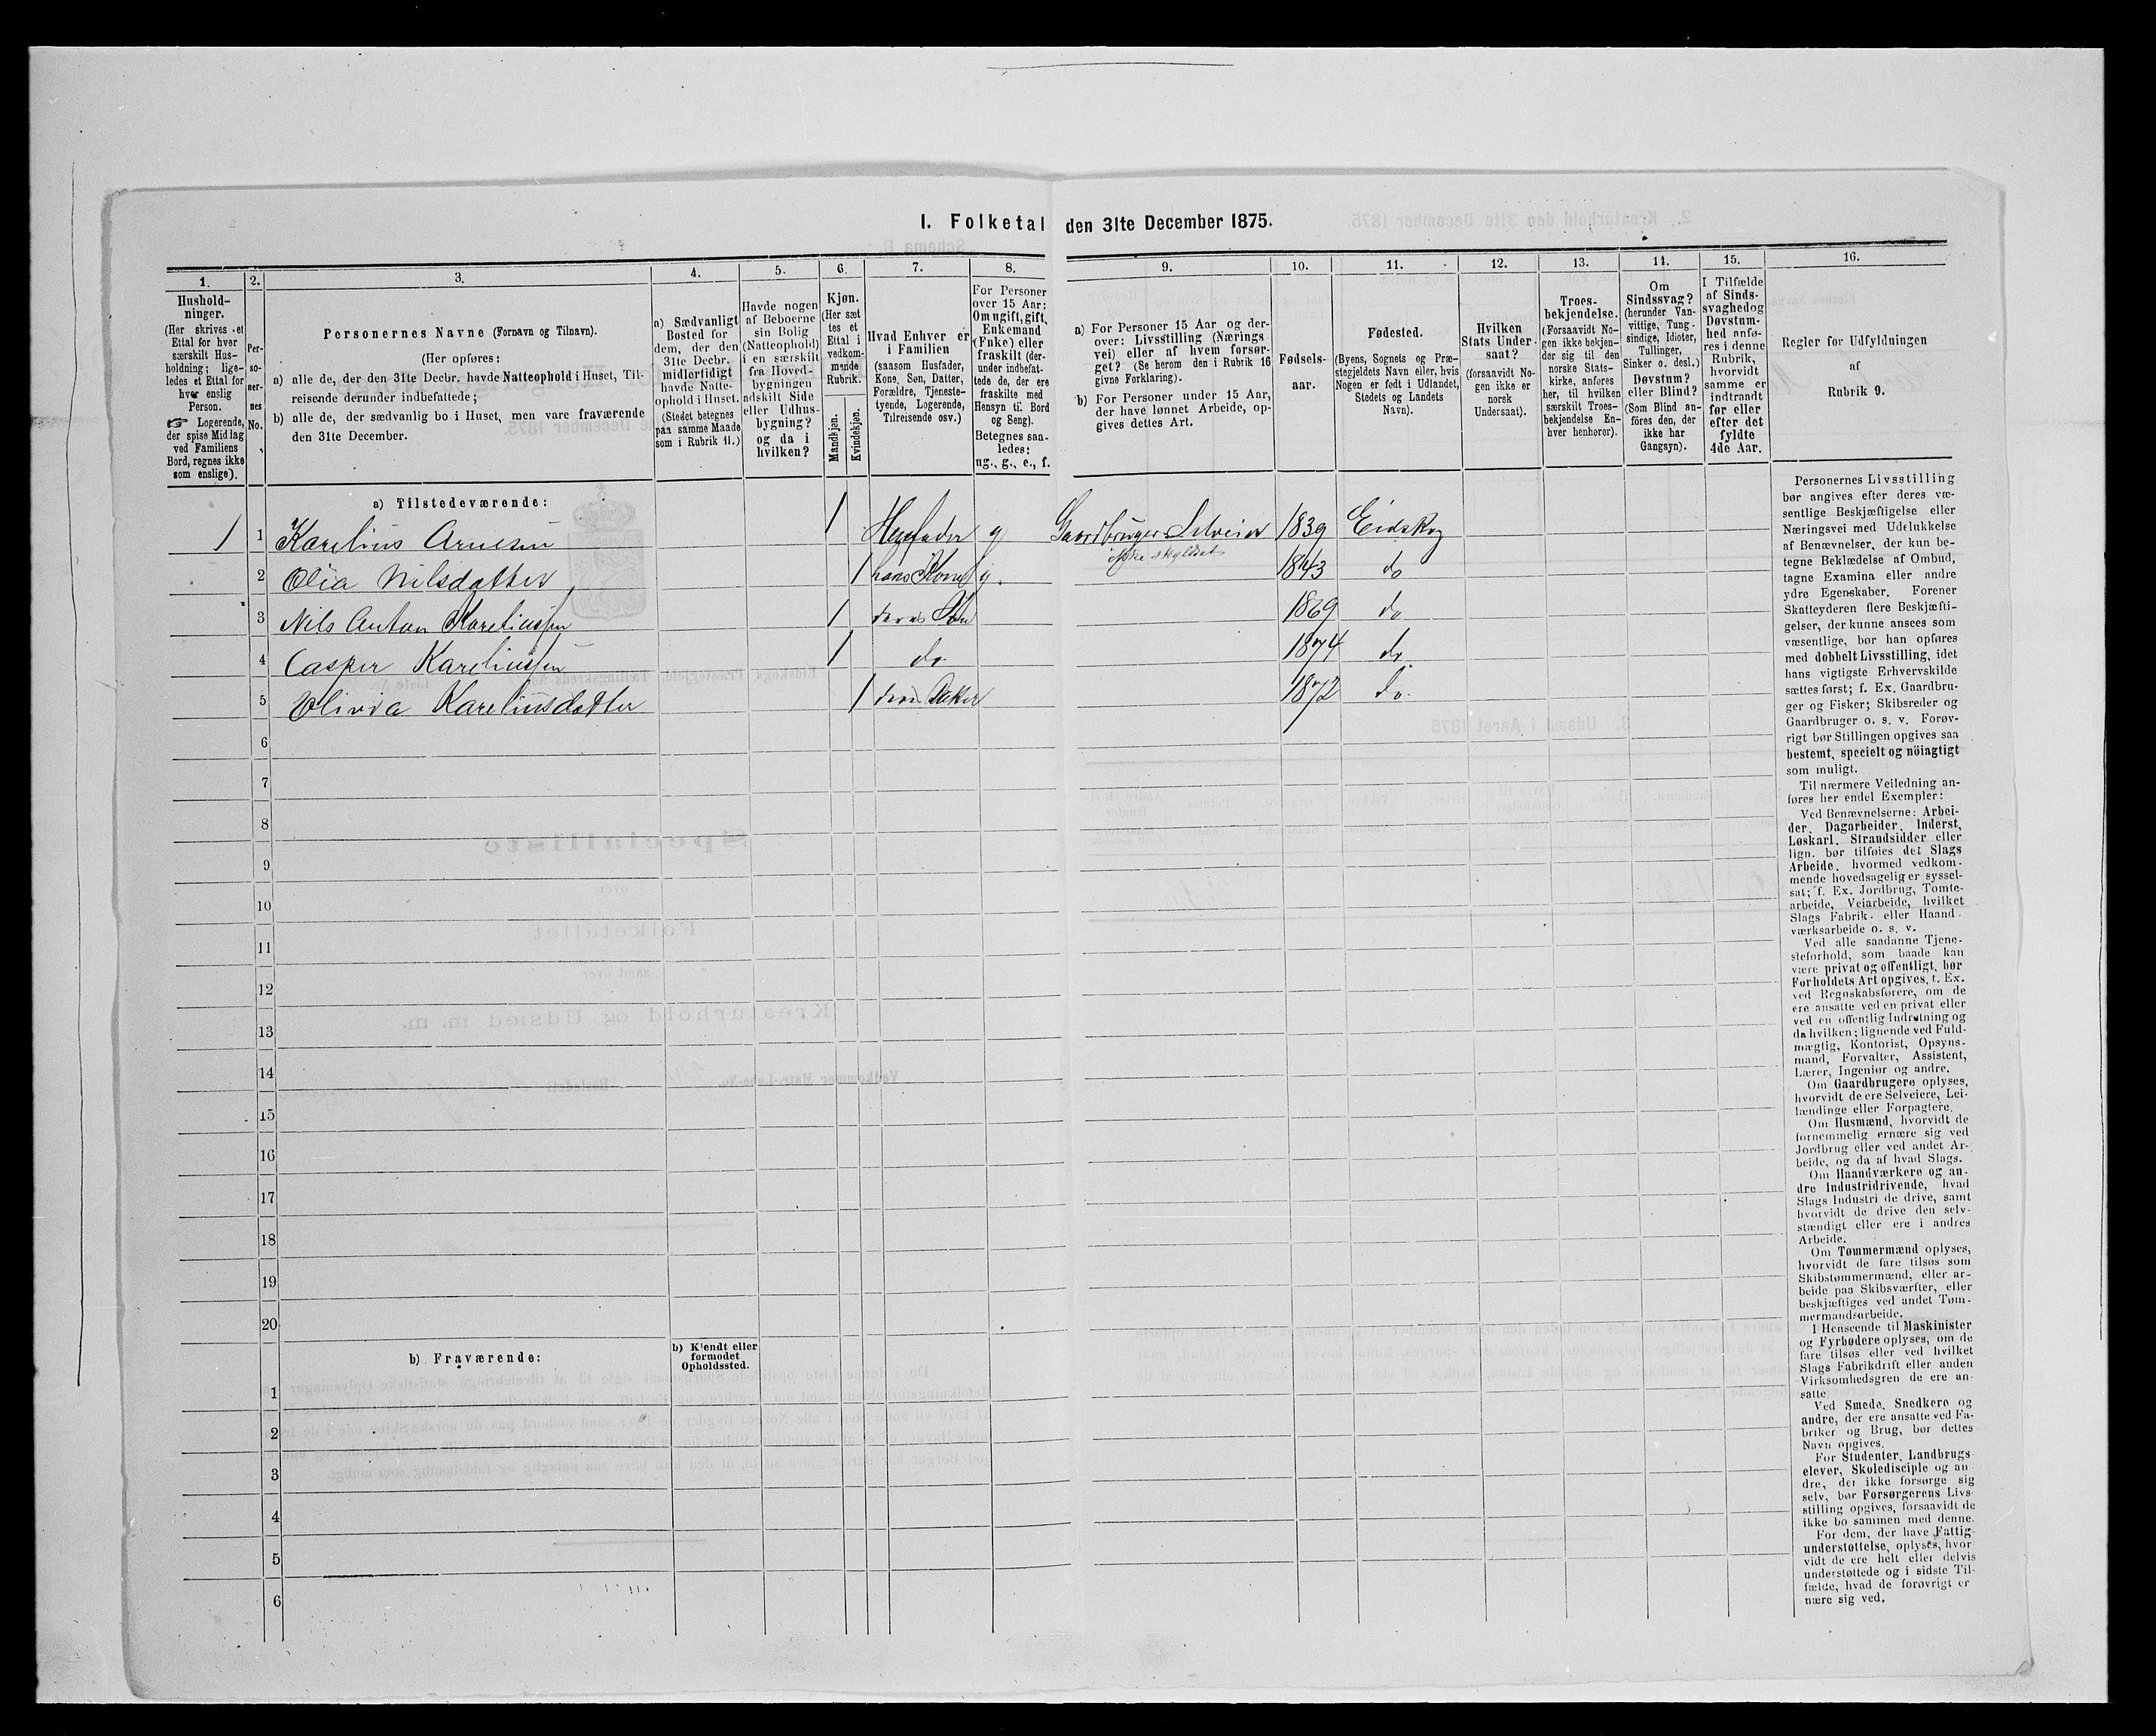 I. Folketal den 31te December 1875.
1. 2. 3. 4. 5. 6. 7. 8. 9. 10. 11. 12. 13. 14. 15. 16.
Hushold-
ninger.
(Her skrives et
Ettal for hver
særskilt Hus-
holdning; lige-
ledes et Ettal for
hver enslig
Person.
☞ Logerende,
der spise Middag
ved Familiens
Bord, regnes ikke
som enslige).
Per-
so-
ner-
nes
No.
Personernes Navne (Fornavn og Tilnavn).
(Her opføres:
a) alle de, der den 31te Decbr. havde Natteophold i Huset, Til-
reisende derunder indbefattede;
b) alle de, der sædvanlig bo i Huset, men vare fraværende
den 31te December.
a) Sædvanligt
Bosted for
dem, der den
31te Decbr.
midlertidigt
havde Natte-
ophold i Huset.
(Stedet betegnes
paa samme Maade
som i Rubrik 11.)
Havde nogen
af Beboerne
sin Bolig
(Natteophold)
i en særskilt
fra Hoved-
bygningen
adskilt Side
eller Udhus-
bygning?
og da i
hvilken?
Kjøn.
(Her sæt
tes et
Ettal i
vedkom-
mende
Rubrik.
Mandkjøn.
Kvindekjøn.
Hvad Enhver er
i Familien
(saasom Husfader,
Kone, Søn, Datter,
Forældre, Tjeneste-
tyende, Logerende,
Tilreisende osv.)
For Personer
over 15 Aar:
Om ugift, gift,
Enkemand
(Enke) eller
fraskilt (der-
under indbefat-
tede de, der ere
fraskilte med
Hensyn til Bord
og Seng).
Betegnes saa-
ledes:
ug., g., e., f.
a) For Personer 15 Aar og der-
over: Livsstilling (Nærings
vei) eller af hvem forsør-
get? (Se herom den i Rubrik 16
givne Forklaring).
b) For Personer under 15 Aar,
der have lønnet Arbeide, op-
gives dettes Art.
Fødsels-
aar.
Fødested.
(Byens, Sognets og Præ-
stegjeldets Navn eller, hvis
Nogen er født i Udlandet,
Stedets og Landets
Navn).
Hvilken
Stats Under-
saat?
(forsaavidt No-
gen ikke er
norsk
Undersaat).
Troes-
bekjendelse.
(Forsaavidt No-
gen ikke bekjen-
der sig til den
norske Stats-
kirke, anføres
her, til hvilken
særskilt Troes-
bekjendelse En-
hver henhører).
Om
Sindssvag?
(herunder Van-
vittige, Tung-
sindige, Idioter,
Tullinger,
Sinker o. desl.)
Døvstum?
eller Blind?
(Som Blind an-
føres den, der
ikke har
Gangsyn).
I Tilfælde
af Sinds-
svaghed og
Døvstum-
hed anfø-
res i denne
Rubrik,
hvorvidt
samme er
indtraadt
før eller
efter det
fyldte
4de Aar.
Regler for Udfyldningen
af
Rubrik 9.
a) Tilstedeværende:
1 1 Karelius Arnesen 1 g Gaardbruger Selveier 1839 Eidskog
ikke skyldsat
2 Olia Nilsdatter 1 hans Kone g. 1843 do
3 Nils Anton Kareliussen 1 deres Søn 1869 do
4 Casper Kareliussen 1 do 1874 do.
5 Olivia Kareliusdatter 1 1872 do.
6
7
8
9
10
11
12
13
14
15
16
17
18
19
20
b) Fraværende:
b) Kjendt eller
formodet
Opholdssted.
1
2
3
4
5
6
Personernes Livsstilling
bør angives efter deres væ-
sentlige Beskjæftigelse eller
Næringsvei med Udelukkelse
af Benævnelser, der kun be-
tegne Beklædelse af Ombud,
tagne Examina eller andre
ydre Egenskaber. Forener
Skatteyderen flere Beskjæfti-
gelser, der kunne ansees som
væsentlige, bør han opføres
med dobbelt Livsstilling, idet
hans vigtigste Erhvervskilde
sættes først; f. Ex. Gaardbru-
ger og Fisker; Skibsreder og
Gaardbruger o. s. v. Forøv-
rigt bør Stillingen opgives saa
bestemt, specielt og nöiagtigt
som muligt.
Til nærmere Veiledning an-
føres her endel Exempler:
Ved Benævnelserne: Arbei-
der, Dagarbeider, Inderst,
Løskarl, Strandsidder eller
lign. bør tilføies det Slags
Arbeide, hvormed vedkom-
mende hovedsagelig er syssel-
sat; f. Ex. Jordbrug, Tomte-
arbeide, Veiarbeide, hvilket
Slags Fabrik- eller Haand-
værksarbeide o. s. v.
Ved alle saadanne Tjene-
steforhold, som baade kan
være privat og offentligt, bør
Forholdets Art opgives, t. Ex.
ved Regnskabsførere, om de
ere ansatte ved en privat eller
ved en offentlig Indretning og
da hvilken; lignende ved Fuld-
mægtig, Kontorist, Opsyns-
mand, Forvalter, Assistent,
Lærer, Ingeniør og andre.
Om Gaardbrugere oplyses,
hvorvidt de ere Selveiere, Lei-
lændinge eller Forpagtere.
Om Husmænd, hvorvidt de
fornemmelig ernære sig ved
Jordbrug eller ved andet Ar-
beide, og da af hvad Slags.
Om Haandværkere og an-
dre Industridrivende, hvad
Slags Industri de drive, samt
hvorvidt de drive den selv-
stændigt eller ere i andres
Arbeide.
Om Tømmermænd oplyses,
hvorvidt de fare tilsøs som
Skibstømmermænd, eller ar-
beide paa Skibsværfter, eller
beskjæftiges ved andet Tøm-
mermandsarbeide.
I Henseende til Maskinister
og Fyrbødere oplyses, om de
fare tilsøs eller ved hvilket
Slags Fabrikdrift eller anden
Virksomhedsgren de ere an-
satte.
Ved Smede, Snedkere og
andre, der ere ansatte ved Fa-
briker og Brug, bør dettes
Navn opgives.
For Studenter, Landbrugs-
elever, Skoledisciple og an-
dre, der ikke forsørge sig
selv, bør Forsørgerens Livs-
stilling opgives, forsaavidt de
ikke bo sammen med denne.
For dem, der have Fattig-
understøttelse, oplyses, hvor
vidt de ere helt eller delvis
understøttede og i sidste Til-
fælde, hvad de forøvrigt er
nære sig ved.